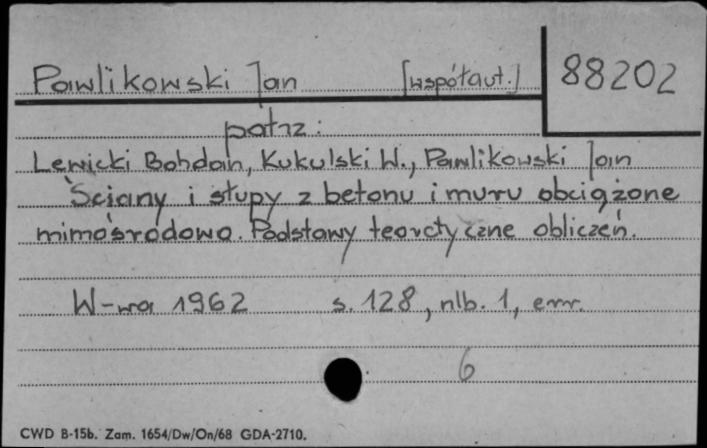 Pawlikowski Jan [współaut.] 88202
patrz:
Lewicki Bohdan, Kukulski W., Pawlikowski Jan
Ściany i słupy z betonu i muru obciążone
mimośrodowo. Podstawy teoretyczne obliczeń.
W-wa 1962 s. 128, nlb. 1, err.
6
CWD B-15b. Zam. 1654/Dw/On/68 GDA-2710.